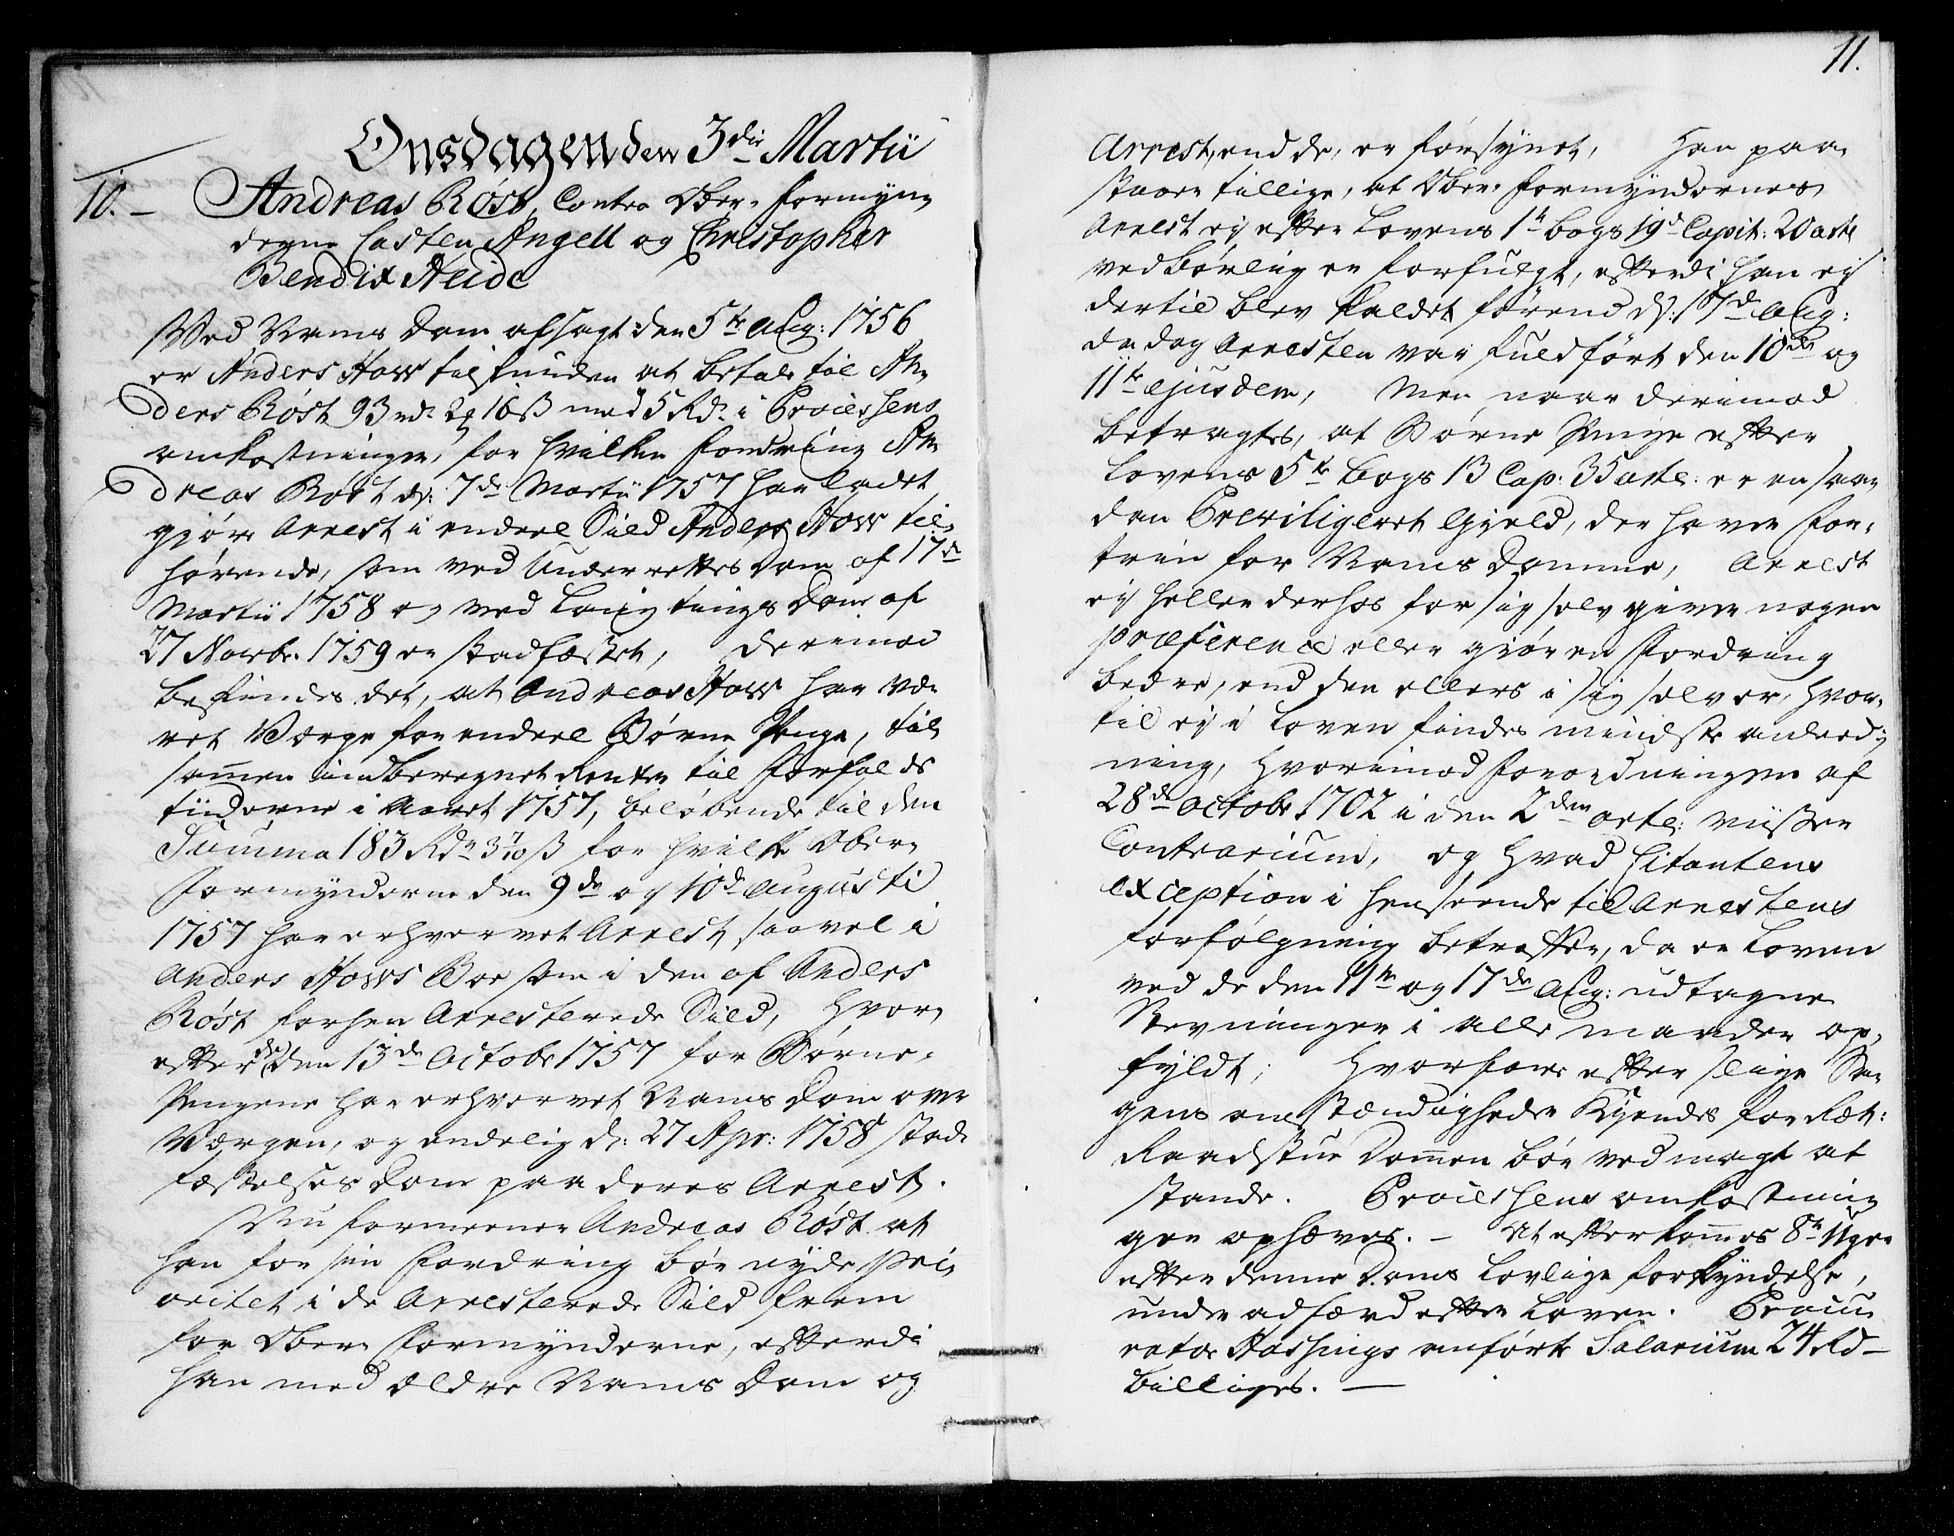 Onsdagen den 3die Martii
10. — Andreas Röst, Contra Ober-Formyn-
derne Casten Angell og Christopher
Bendix Heide
Ved Nams Dom afsagt den 5te Aug: 1756
er Anders How tilfunden at betale til An-
ders Röst 93 rdr 2 16 ß med 5 Rdr i Processens
omkostninger, for hvilken Fordring An-
dreas Röst d: 7de Martii 1757 har ladet
giöre Arrest i endeel Sild Anders How til-
hörende, som ved Underrettes Dom af 17de
Martii 1758 og ved Laugtings Dom af
27 Novbr. 1759 er stadfæstet, derimod
befindes det, at Andreas How har væ-
ret Værge for endeel Börne Penge, til-
sammen indberegnet Renter til Forfalds
tiiderne i Aaret 1757, belöbende til den
Summa 183 Rdr 3 10 ß for hvilke Ober-
Formynderne den 9de og 10de Augusti
1757 har erhvervet Arrest, saavel i
Anders Hows Boe som i den af Anders
Röst forhen Arresterede Sild, hvor-
efter de den 13de Octobr 1757 for Börne-
Pengene har erhvervet Nams Dom over
Værgen, og endelig d: 27 Apr: 1758 stad-
fæstelses Dom paa deres Arrest.
Nu formeener Andreas Röst at
han for sin Fordring bör nyde Pri-
oritet i de Arresterede Sild frem
for Ober-Formynderne, efterdi
han med ældre Nams Dom og
11.
Arrest, end de, er forsynet, Han paa-
staaer tillige, at Ober-Formyndernes
Arrest ej efter Lovens 1te Bogs 19de Capit: 2 Artl
vedbörlig er forfulgt, efterdi han ej
dertil blev kaldet förend d: 17de Aug:
da dog Arresten var fuldfört den 10de og
11te ejusdem, Men naar derimod
betragtes, at Börne Penge efter
Lovens 5te Bogs 13 Cap: 35 artl: er en saa-
dan Previligeret Gield, der haver for-
trin for Nams Domme, Arrest
ej heller derhos for sig selv giver nogen
præference eller giör en Fordring
bedre, end den ellers i sig selv er, hvor-
til ej i Loven findes mindste anled-
ning, hvorimod Forordningen af
28de Octobr 1702 i den 2den artl: viiser
Contrarium, og hvad Citantens
exception i Henseende til Arrestens
forfölgning betreffer, da er Loven
ved de den 11te og 17de Aug: udtagne
Stevninger i alle maader op-
fyldt; Hvorfore efter slige Sa-
gens omstændigheder Kiendes for Ret:
Raadstue Dommen bör ved magt at
stande. Processens omkostnin-
ger ophæves. — At efterkommes 8te Uger
efter denne Doms Lovlige forkyndelse,
under adfærd efter Loven. Procu-
rator Hassings anförte Salarium 24 Rd —
billiges. —